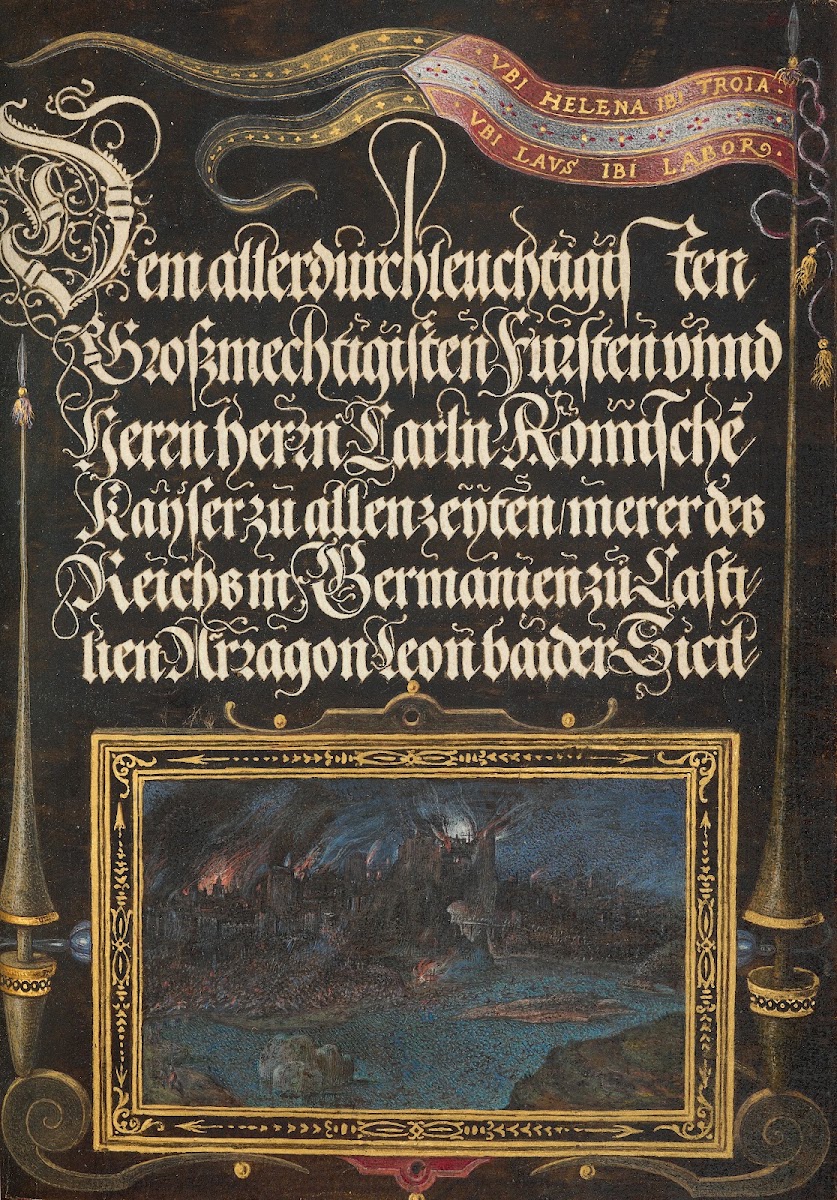 VBI HELENA IBI TROIA.
VBI LAVS IBI LABOR.
Dem allerdurchleuchtigisten
Großmechtigisten Fursten vnnd
Herrn herrn Carln Römischē
Kayser zu allen zeyten / merer des
Reichs in Germanien zu Casti
lien Arragon Leon baider Sicil